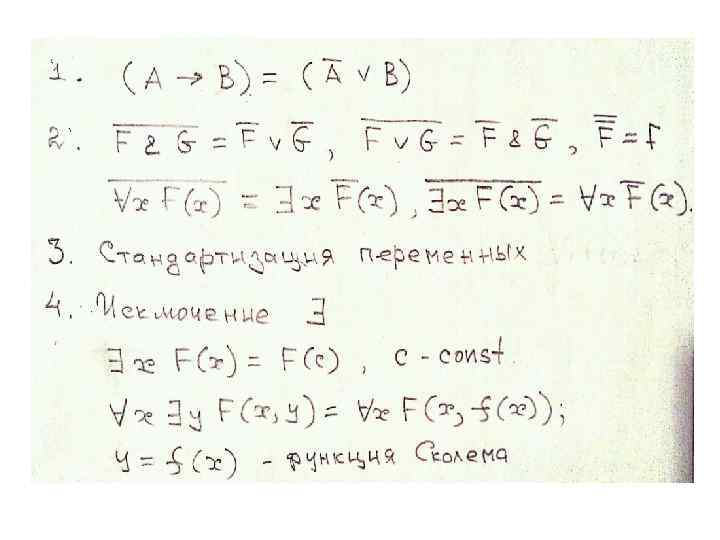 1. (A → B) = (A̅ ∨ B)
2. F̅ ̅&̅ ̅G̅ = F̅ ∨ G̅, F̅ ̅∨̅ ̅G̅ = F̅ & G̅, F̿ = F
∀̅x̅ ̅F̅(̅x̅)̅ = ∃x F̅(x), ∃̅x̅ ̅F̅(̅x̅)̅ = ∀x F̅(x).
3. Стандартизация переменных
4. Исключение ∃
∃x F(x) = F(c), c - const.
∀x ∃y F(x, y) = ∀x F(x, f(x));
y = f(x) - функция Сколема